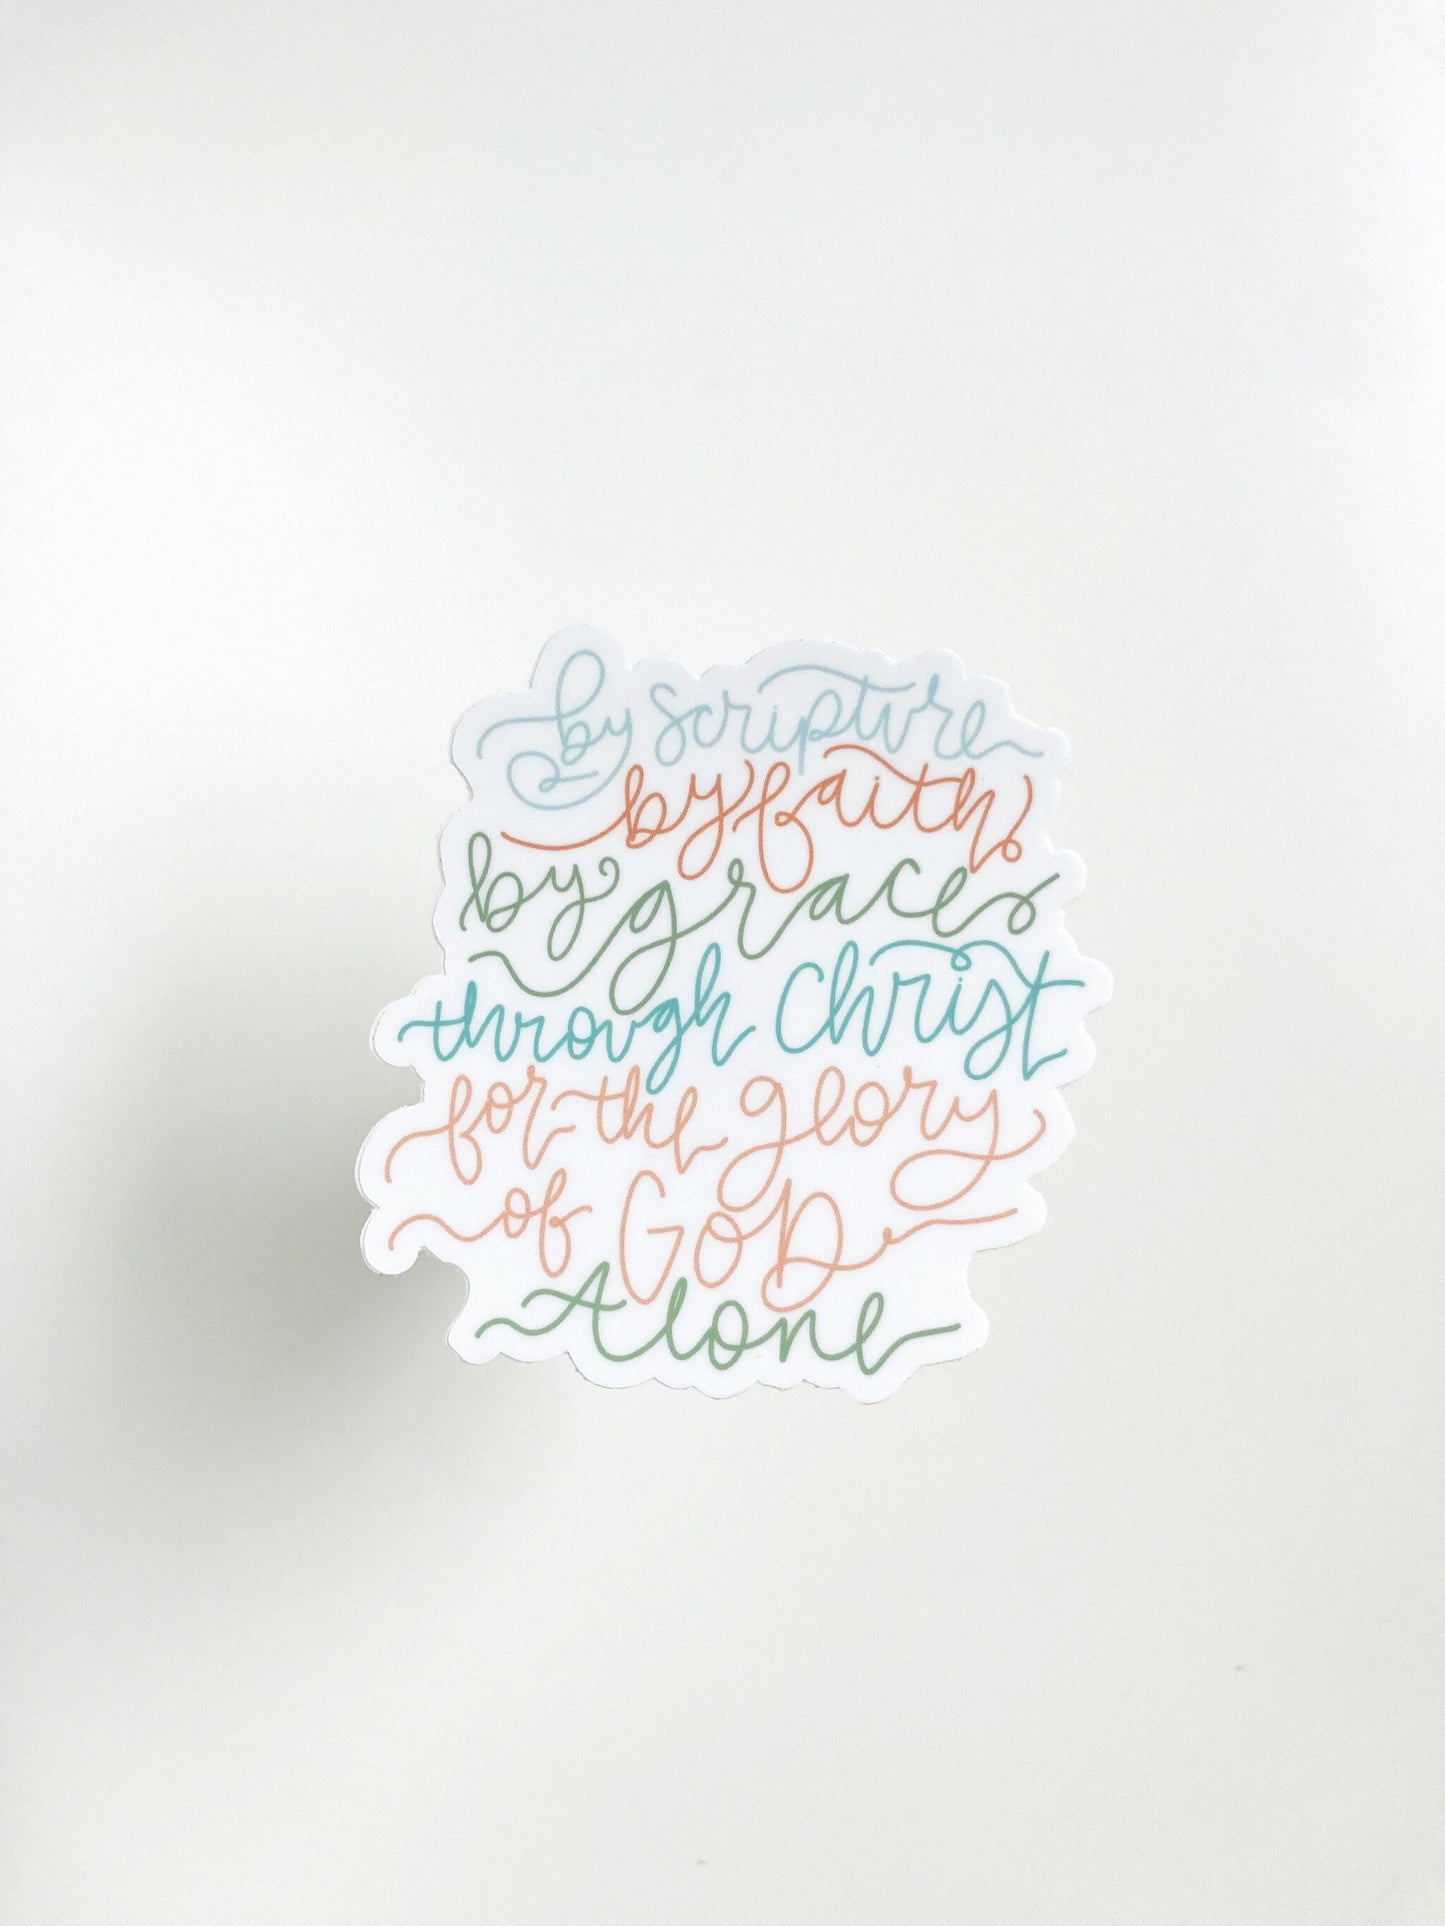 by scripture
by faith
by grace
through Christ
for the glory
of GOD
Alone